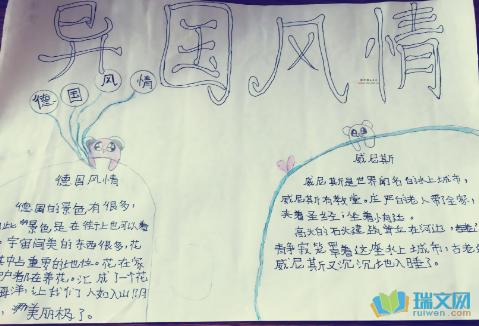 异国风情
德国风情
德国风情
德国的景色有很多,
此 景色是 在 街上也可以看
宇宙间美的东西很多,花
其中占重要的地位。花在家
户都在养花。汇成了一个花
海洋,让我们人如入山阴
美丽极了。
威尼斯
威尼斯是世界闻名的水上城市,
威尼斯有教堂。庄严的老人带全家,
夹着圣经 坐着小艇
高大的石头建筑耸立在河边,
静寂笼罩着这座水上城市,古老的
威尼斯又沉沉地入睡了。
瑞文网
ruiwen.com